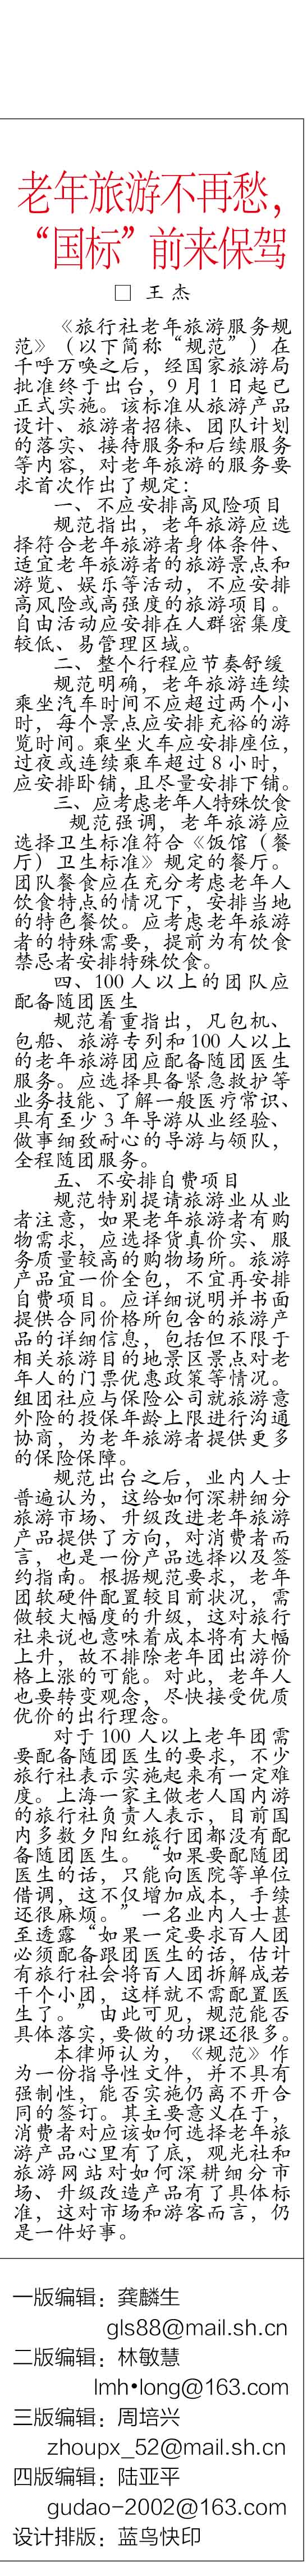 老年旅游不再愁，
“国标”前来保驾
□ 王 杰
《旅行社老年旅游服务规
范》（以下简称“规范”）在
千呼万唤之后，经国家旅游局
批准终于出台，9月1日起已
正式实施。该标准从旅游产品
设计、旅游者招徕、团队计划
的落实、接待服务和后续服务
等内容，对老年旅游的服务要
求首次作出了规定：
一、不应安排高风险项目
规范指出，老年旅游应选
择符合老年旅游者身体条件、
适宜老年旅游者的旅游景点和
游览、娱乐等活动，不应安排
高风险或高强度的旅游项目。
自由活动应安排在人群密集度
较低、易管理区域。
二、整个行程应节奏舒缓
规范明确，老年旅游连续
乘坐汽车时间不应超过两个小
时，每个景点应安排充裕的游
览时间。乘坐火车应安排座位，
过夜或连续乘车超过8小时，
应安排卧铺，且尽量安排下铺。
三、应考虑老年人特殊饮食
规范强调，老年旅游应
选择卫生标准符合《饭馆（餐
厅）卫生标准》规定的餐厅。
团队餐食应在充分考虑老年人
饮食特点的情况下，安排当地
的特色餐饮。应考虑老年旅游
者的特殊需要，提前为有饮食
禁忌者安排特殊饮食。
四、100人以上的团队应
配备随团医生
规范着重指出，凡包机、
包船、旅游专列和100人以上
的老年旅游团应配备随团医生
服务。应选择具备紧急救护等
业务技能、了解一般医疗常识、
具有至少3年导游从业经验、
做事细致耐心的导游与领队，
全程随团服务。
五、不安排自费项目
规范特别提请旅游业从业
者注意，如果老年旅游者有购
物需求，应选择货真价实、服
务质量较高的购物场所。旅游
产品宜一价全包，不宜再安排
自费项目。应详细说明并书面
提供合同价格所包含的旅游产
品的详细信息，包括但不限于
相关旅游目的地景区景点对老
年人的门票优惠政策等情况。
组团社应与保险公司就旅游意
外险的投保年龄上限进行沟通
协商，为老年旅游者提供更多
的保险保障。
规范出台之后，业内人士
普遍认为，这给如何深耕细分
旅游市场、升级改进老年旅游
产品提供了方向，对消费者而
言，也是一份产品选择以及签
约指南。根据规范要求，老年
团软硬件配置较目前状况，需
做较大幅度的升级，这对旅行
社来说也意味着成本将有大幅
上升，故不排除老年团出游价
格上涨的可能。对此，老年人
也要转变观念，尽快接受优质
优价的出行理念。
对于100人以上老年团需
要配备随团医生的要求，不少
旅行社表示实施起来有一定难
度。上海一家主做老人国内游
的旅行社负责人表示，目前国
内多数夕阳红旅行团都没有配
备随团医生。“如果要配随团
医生的话，只能向医院等单位
借调，这不仅增加成本，手续
还很麻烦。”一名业内人士甚
至透露“如果一定要求百人团
必须配备跟团医生的话，估计
有旅行社会将百人团拆解成若
干个小团，这样就不需配置医
生了。”由此可见，规范能否
具体落实，要做的功课还很多。
本律师认为，《规范》作
为一份指导性文件，并不具有
强制性，能否实施仍离不开合
同的签订。其主要意义在于，
消费者对应该如何选择老年旅
游产品心里有了底，观光社和
旅游网站对如何深耕细分市
场、升级改造产品有了具体标
准，这对市场和游客而言，仍
是一件好事。
一版编辑：龚麟生
gls88@mail.sh.cn
二版编辑：林敏慧
lmh•long@163.com
三版编辑：周培兴
zhoupx_52@mail.sh.cn
四版编辑：陆亚平
gudao-2002@163.com
设计排版：蓝鸟快印